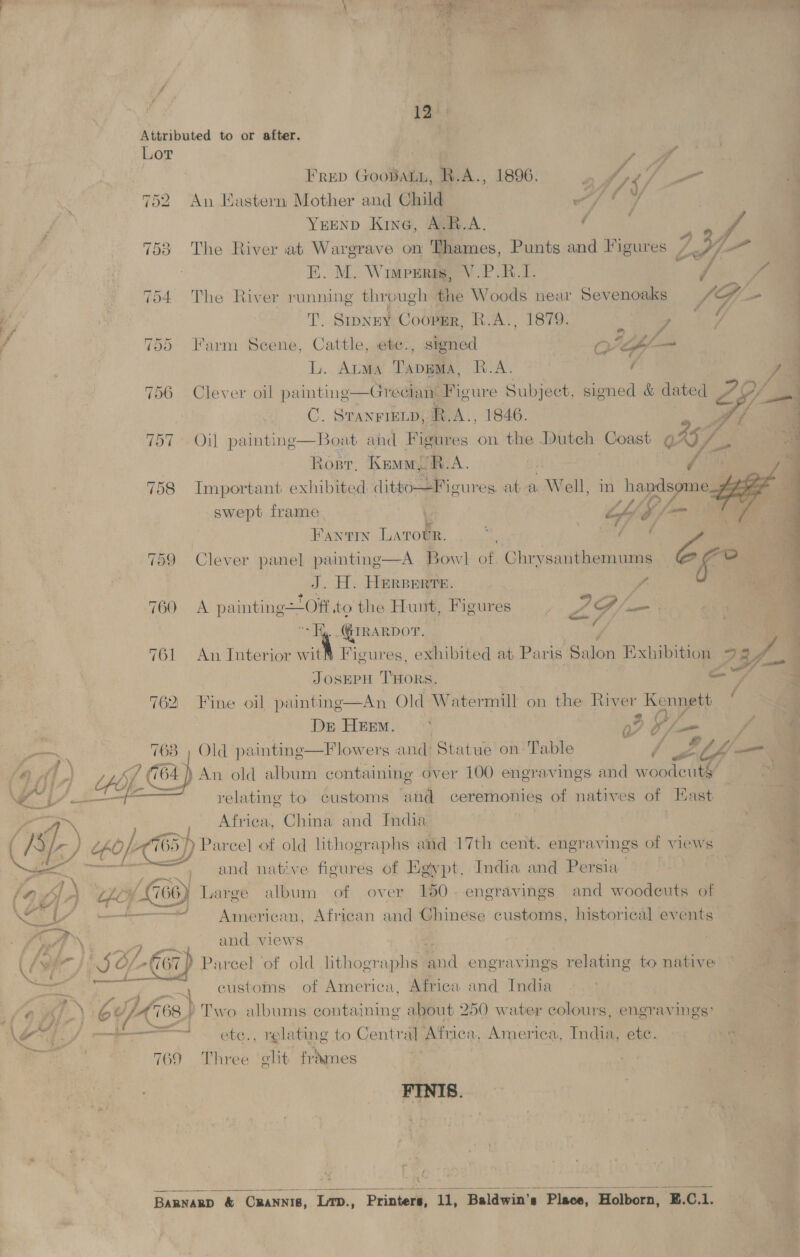 12
Attributed to or after.
Lot
Fred Goodall, R.A., 1896.
752 An Eastern Mother and Child
Yeend King, A.R.A.
753 The River at Wargrave on Thames, Punts and Figures
E. M. Wimperis, V.P.R.I.
754 The River running through the Woods near Sevenoaks
T. Sidney Cooper, R.A., 1879.
755 Farm Scene, Cattle, etc., signed
L. Alma Tadema, R.A.
756 Clever oil painting—Grecian Figure Subject, signed & dated
C. Stanfield, R.A., 1846.
757 Oil painting—Boat and Figures on the Dutch Coast
Robt. Kemm, R.A.
758 Important exhibited ditto—Figures at a Well, in handsome
swept frame
Fantin Latour.
759 Clever panel painting—A Bowl of Chrysanthemums
J. H. Herberte.
760 A painting—Off to the Hunt, Figures
F. Girardot.
761 An Interior with Figures, exhibited at Paris Salon Exhibition
Joseph Thors.
762 Fine oil painting—An Old Watermill on the River Kennett
De Heem.
763 Old painting—Flowers and Statue on Table
764 An old album containing over 100 engravings and woodcuts
relating to customs and ceremonies of natives of East
Africa, China and India
765 Parcel of old lithographs and 17th cent. engravings of views
and native figures of Egypt, India and Persia
766 Large album of over 150 engravings and woodcuts of
American, African and Chinese customs, historical events
and views
767 Parcel of old lithographs and engravings relating to native
customs of America, Africa and India
768 Two albums containing about 250 water colours, engravings
etc., relating to Central Africa, America, India, etc.
769 Three gilt frames
FINIS.
Barnard & Crannis, Ltd., Printers, 11, Baldwin's Place, Holborn, E.C.1.